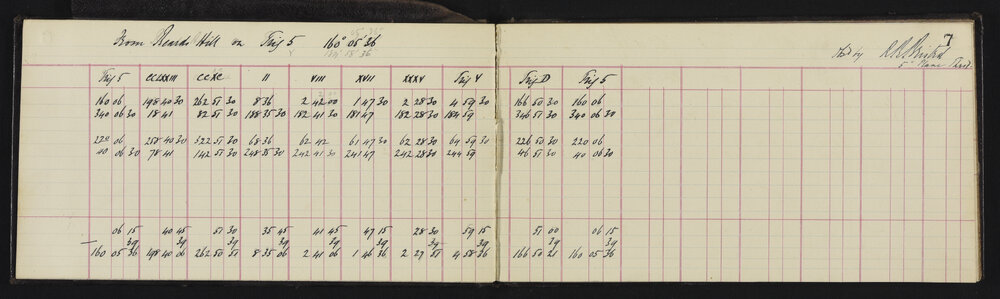 7
From Reards Hill on Trig 5 160° 05' 36
Obs by
Trig 5 CCLXXIII CCXC II VIII XVII XXXV Trig Y Trig D Trig 5
160 06 198 40 30 262 51 30 8 36 2 42 00 1 47 30 2 28 30 4 59 30 166 50 30 160 06
340 06 30 18 41 82 51 30 188 35 30 182 41 30 181 47 182 28 30 184 59 346 51 30 340 06 30
220 06 258 40 30 322 51 30 68 36 62 42 61 47 30 62 28 30 64 59 30 226 50 30 220 06
40 06 30 78 41 142 51 30 248 35 30 242 41 30 241 47 242 28 30 244 59 46 51 30 40 06 30
06 15 40 45 51 30 35 45 41 45 47 15 28 30 59 15 51 00 06 15
— 39 39 39 39 39 39 39 39 39 39
160 05 36 198 40 06 262 50 51 8 35 06 2 41 06 1 46 36 2 27 51 4 58 36 166 50 21 160 05 36